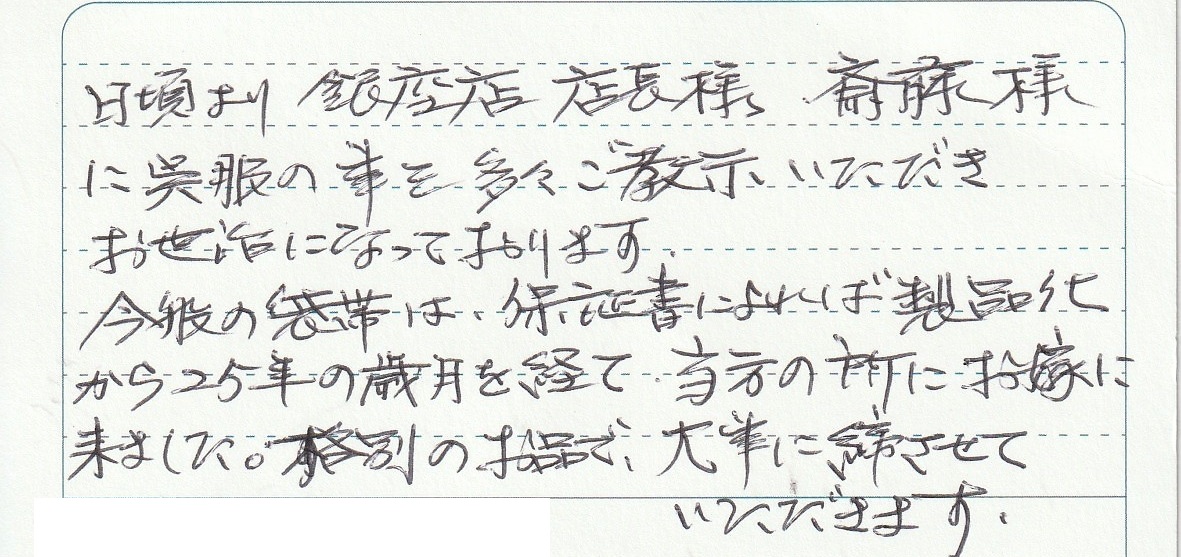 日頃より 銀座店 店長様、斎藤様
に呉服の事を多々ご教示いただき
お世話になっております。
今般の袋帯は、保証書によれば製品化
から25年の歳月を経て 当方の所にお嫁に
来ました。格別のお品で、大事に締させて
いただきます。